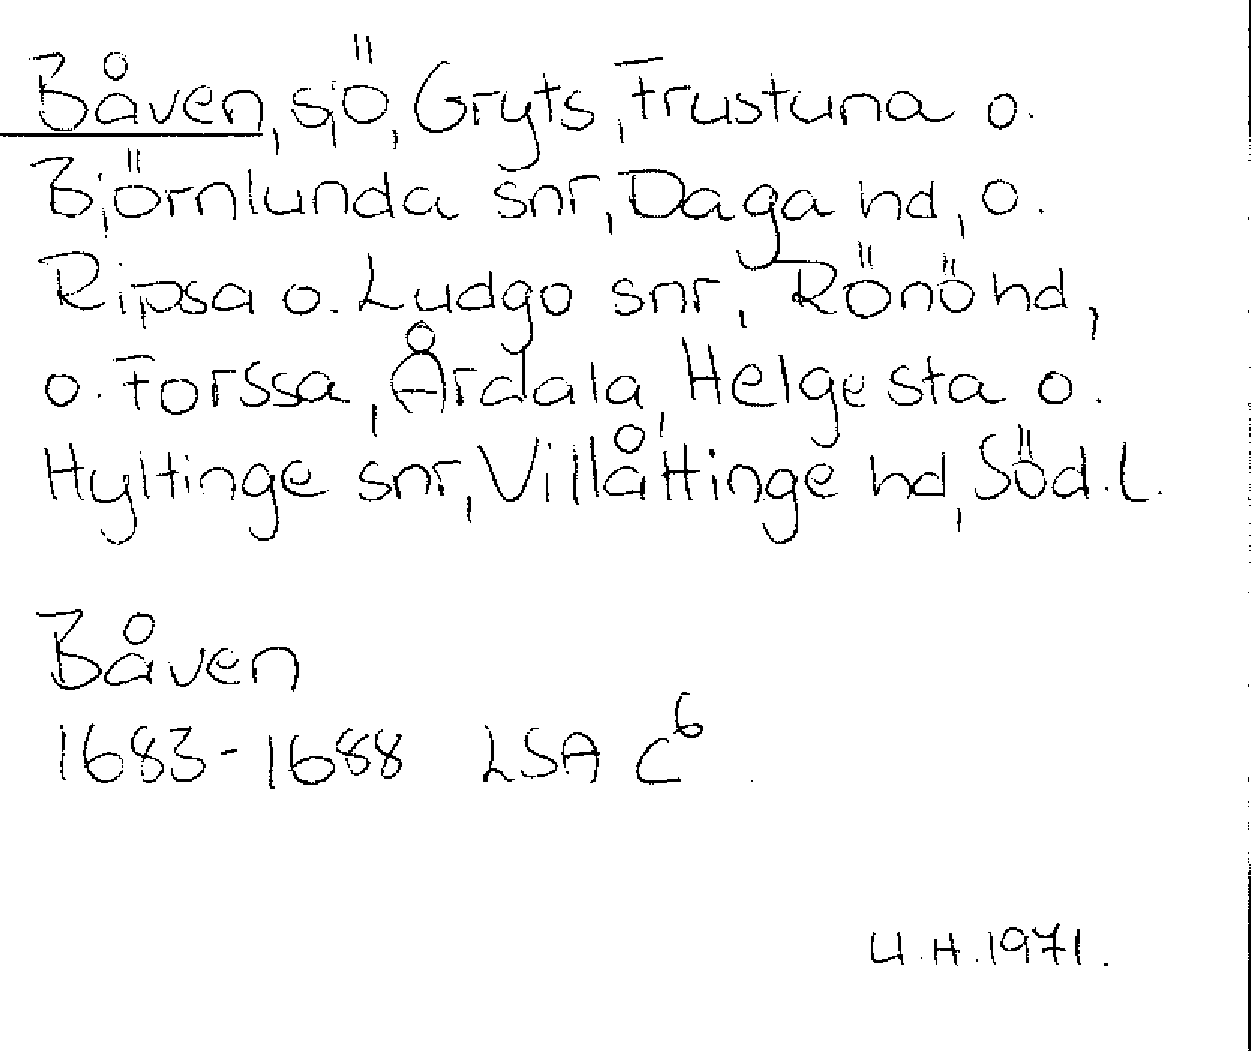 Båven, sjö, Gryts, Frustuna o.
Björnlunda snr, Daga hd, o.
Ripsa o. Ludgo snr, Rönö hd,
o. Forssa, Årdala, Helgesta o.
Hyltinge snr, Villåttinge hd, Söd. l.
Båven
1683-1688 LSA C⁶
U.H. 1971.